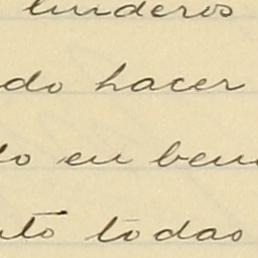 linderos
do hacer
do en ben
nto todas